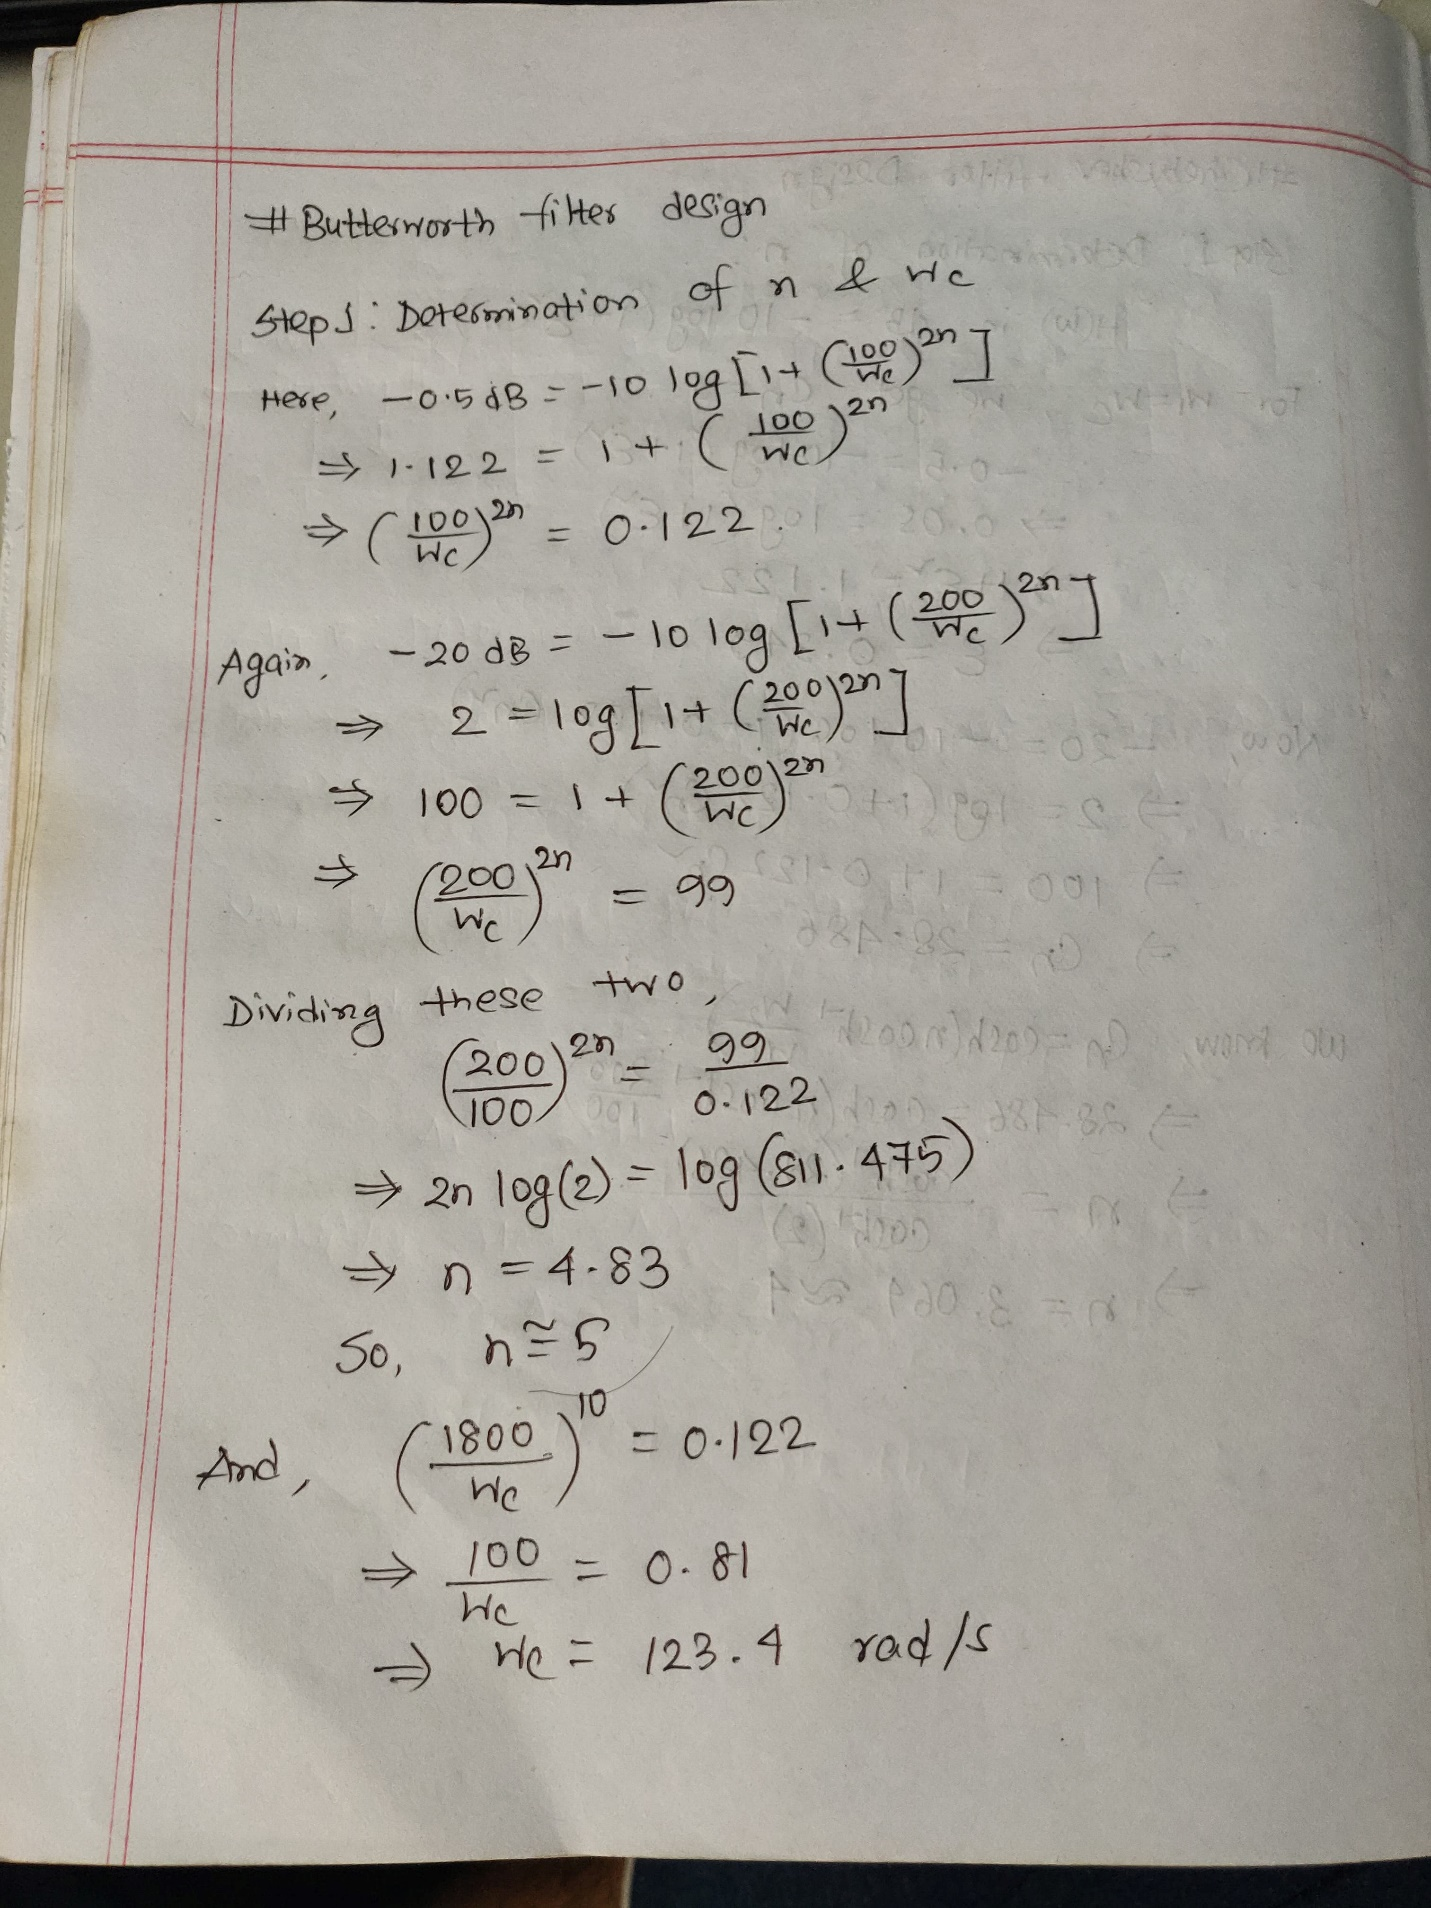 # Butterworth filter design
Step 1: Determination of n & wc
Here, -0.5 dB = -10 log [1+ (100/wc)^2n ]
⇒ 1.122 = 1 + (100/wc)^2n
⇒ (100/wc)^2n = 0.122
Again, -20 dB = -10 log [1+ (200/wc)^2n ]
⇒ 2 = log [1+ (200/wc)^2n ]
⇒ 100 = 1 + (200/wc)^2n
⇒ (200/wc)^2n = 99
Dividing these two,
(200/100)^2n = 99/0.122
⇒ 2n log(2) = log (811.475)
⇒ n = 4.83
So, n ≅ 5
And, (1800/wc)^10 = 0.122
⇒ 100/wc = 0.81
⇒ wc = 123.4 rad/s